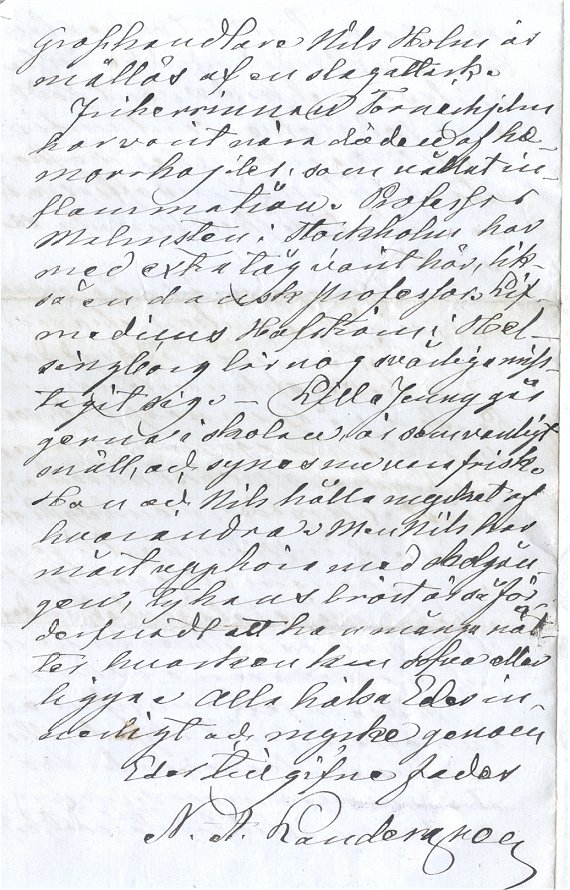 Grosshandlare Nils Holm är
mållös af en slagattack.
Friherrinnan Tornerhjelm
har varit nära döden af he-
morrhojder, som vållat in-
flammation. Professor
Malmsten i Stockholm har
med extratåg varit här, lik-
så en dansk professor. Lif-
medicus i Hel-
singborg lär nog svårligen miss-
tagit sig. – Lilla Jenny går
gerna i skolan, är som vanligt
snäll, och synes nu vara frisk.
Hon och Nils hålla mycket af
hvarandra. Men Nils har
måst upphöra med skolgån-
gen, ty hans bröst är så för-
derfvadt att han många nät-
ter hvarken kan sofva eller
ligga. Alla helsa Eder in-
nerligt och mycket genom
Eder tillgifne fader
N. A.